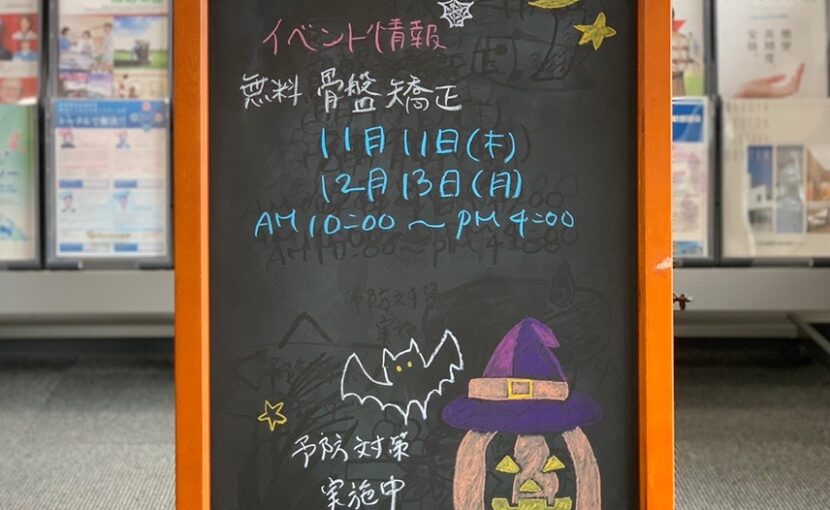 イベント情報
無料 骨盤矯正
11月11日(木)
12月13日(月)
AM 10:00 ～ PM 4:00
予防対策
実施中